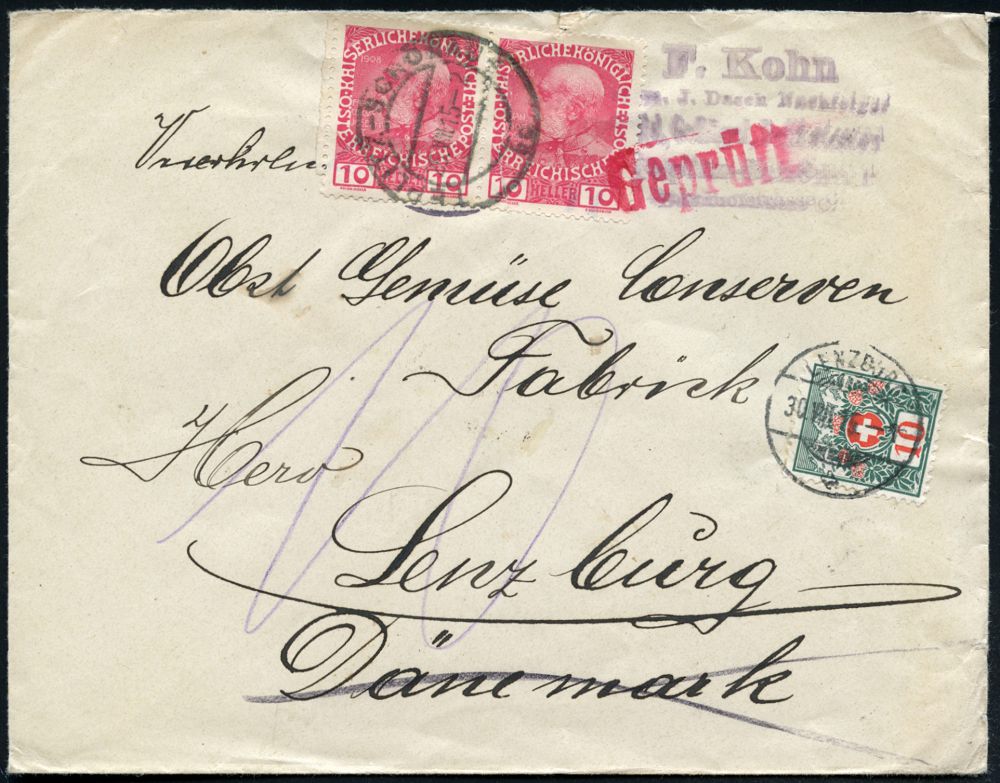 KAISERLICHEKÖNIGLICHE ÖSTERREICHISCHE POST
1908
10 HELLER 10
KAISERLICHEKÖNIGLICHE ÖSTERREICHISCHE POST
10 HELLER 10
F. Kohn
J. Dasch Nachfolger
Geprüft
Obst Gemüse Conserven
Fabrick
LENZBURG
30 VIII 15
10
Hero
10
Lenzburg
Dänemark